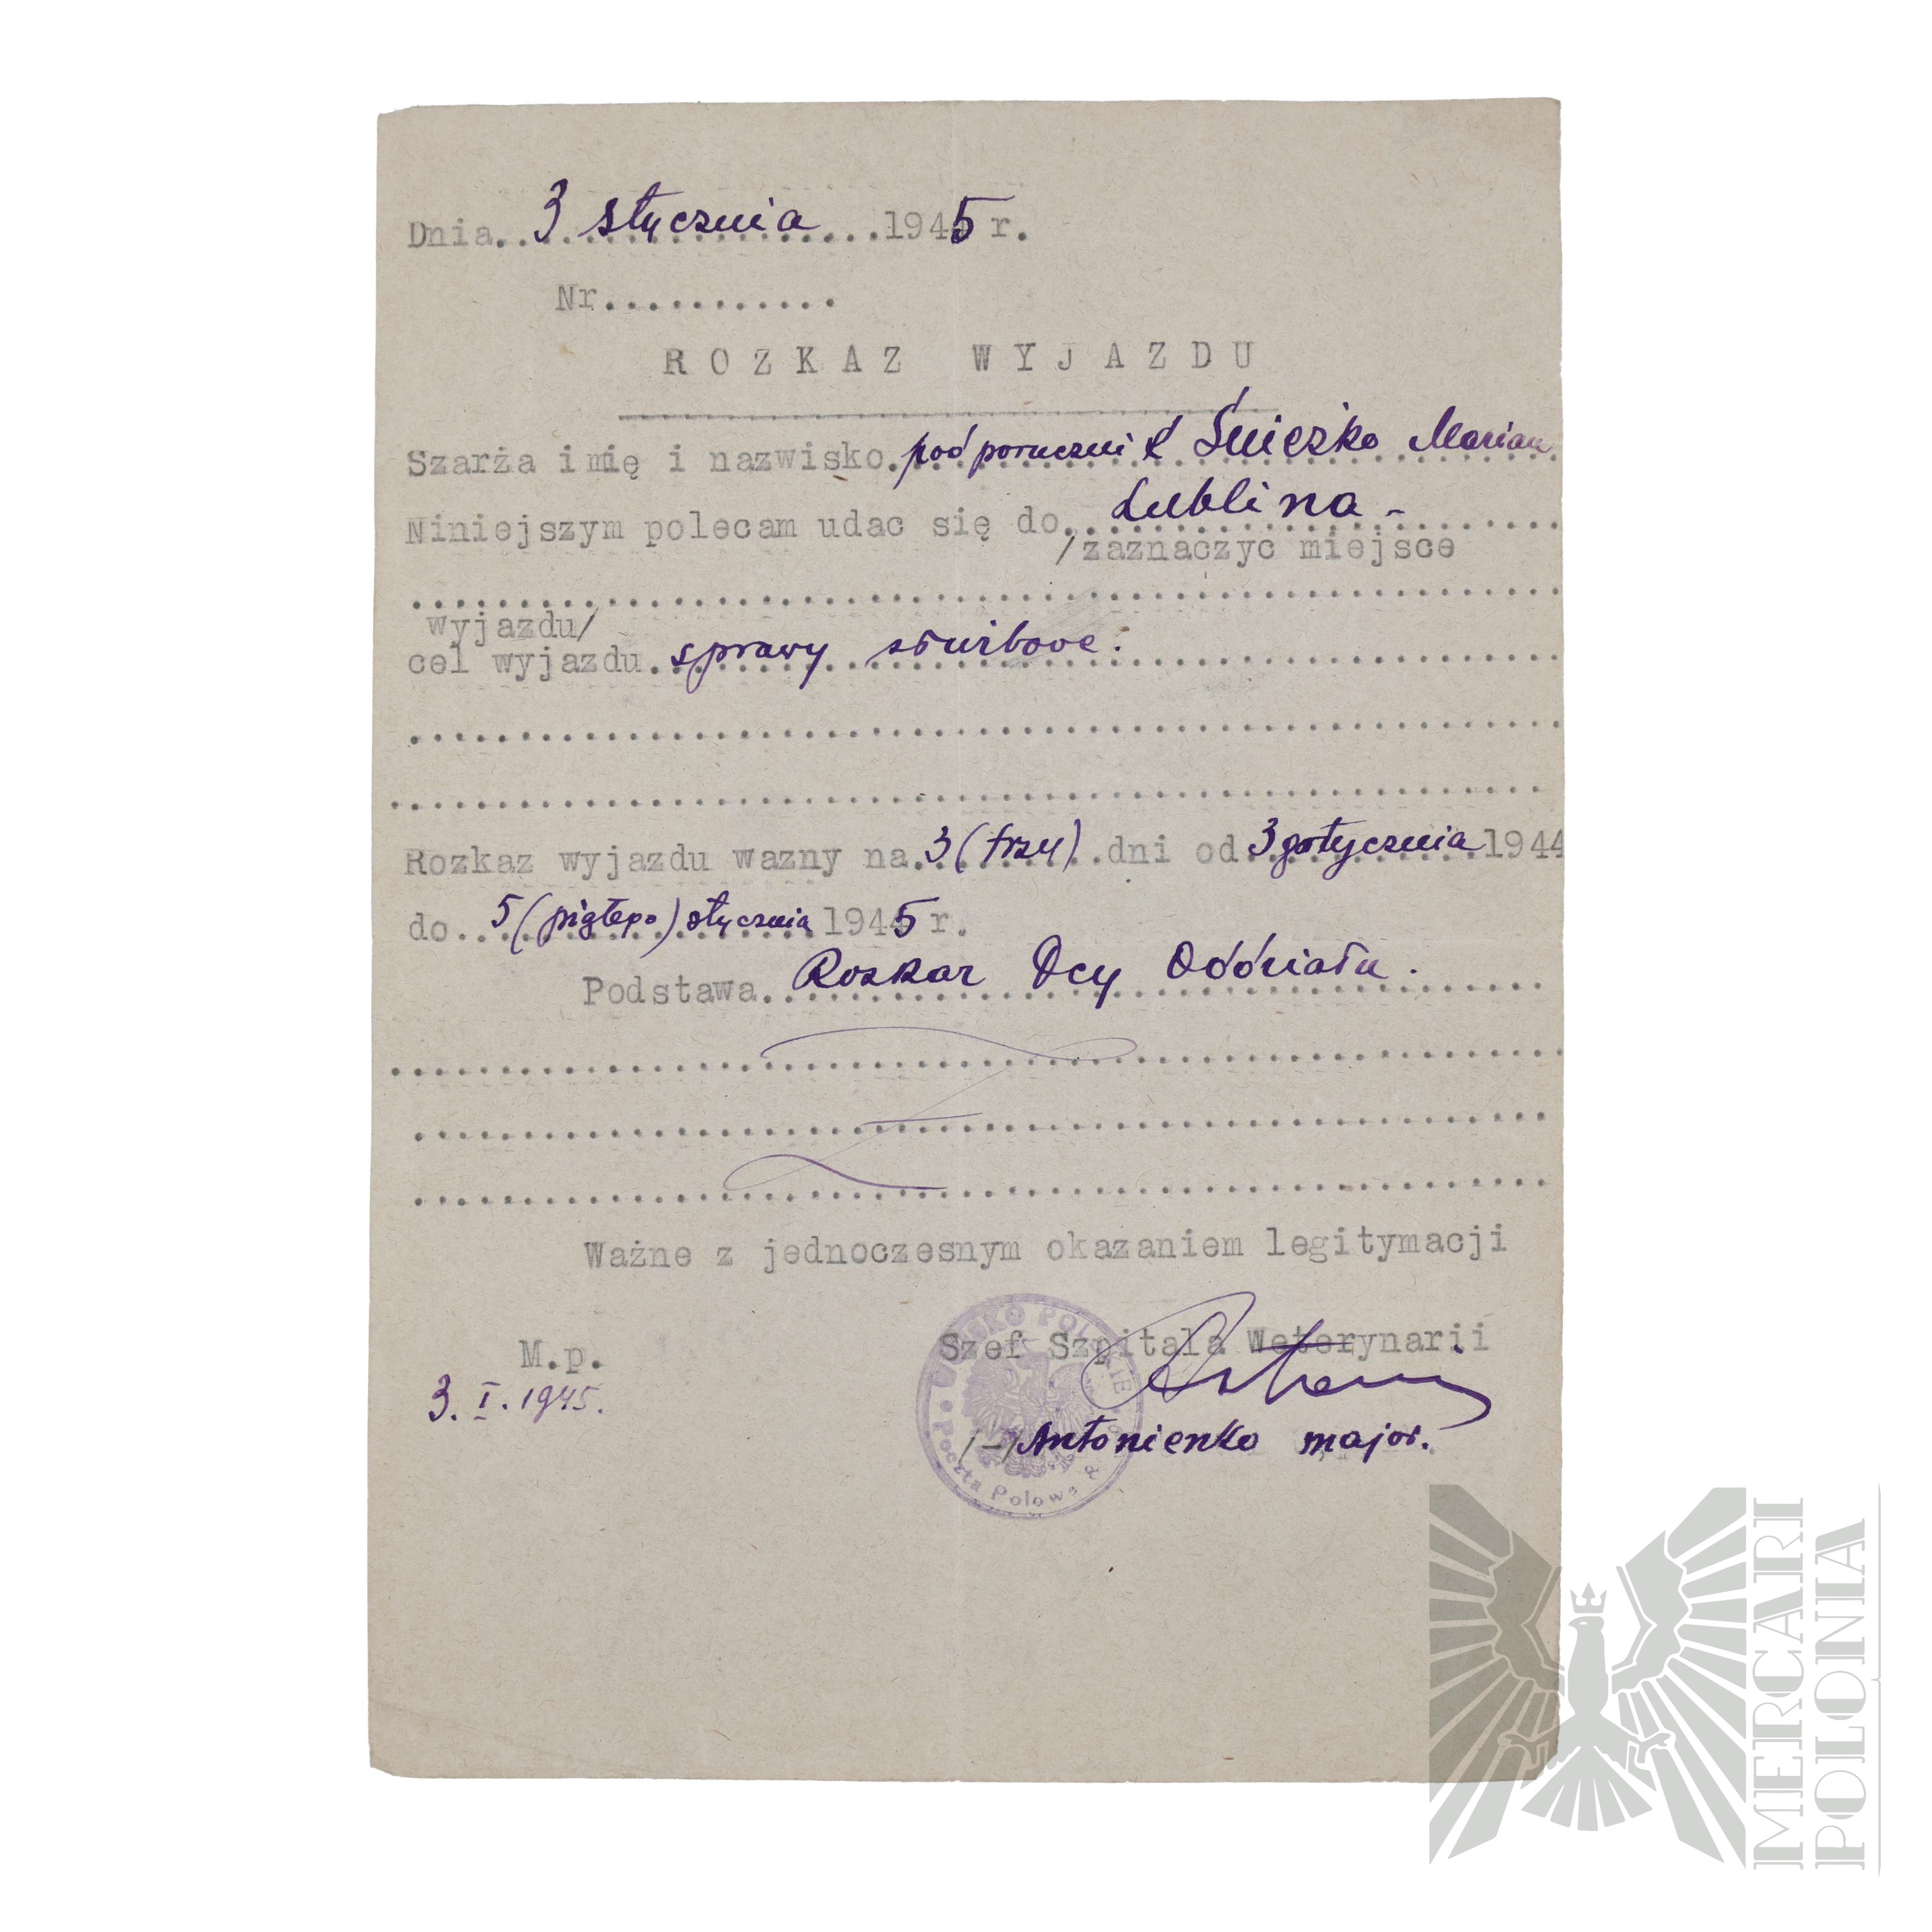 Dnia..3 stycznia...1945 r.
Nr............
ROZKAZ WYJAZDU
Szarża imię i nazwisko. podporucznik Śnieżko Marian
Niniejszym polecam udac się do.. Lublina -
/zaznaczyc miejsce
wyjazdu/
cel wyjazdu. sprawy służbowe.
Rozkaz wyjazdu wazny na. 3 (trzy)..dni od 3go stycznia 1944
do.. 5 (piątego) stycznia 1945 r.
Podstawa.. Rozkaz Dcy Oddziału.
Ważne z jednoczesnym okazaniem legitymacji
M.p.
Szef Szpitala Weterynarii
3. I. 1945.
/-/ Antonienko major.
WOJSKO POLSKIE
Poczta Polowa
MERCARI
POLONIA